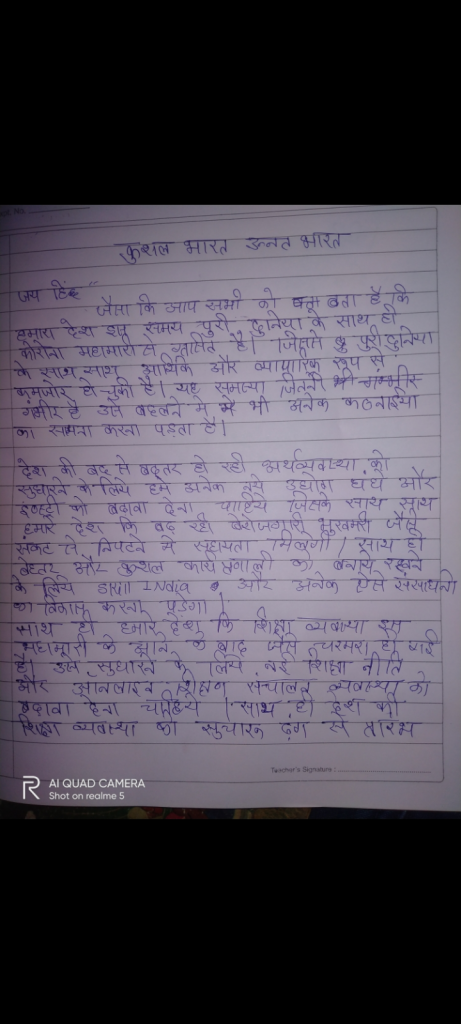 कुशल भारत उन्नत भारत
जय हिंद"
जैसा कि आप सभी को पता है कि
हमारा देश इस समय पुरी दुनिया के साथ ही
कोरोना महामारी से ग्रसित है। जिससे पुरी दुनिया
के साथ साथ आर्थिक और व्यापारिक रूप से
कमजोर हो चुकी है। यह समस्या जितनी
गंभीर है उसे बदलने मे भी अनेक कठनाईयो
का सामना करना पड़ता है।
देश की बद से बदतर हो रही अर्थव्यवस्था को
सुधारने के लिये हमे अनेक नये उद्योग धंधे और
को बढ़ावा देना चाहिये जिसके साथ साथ
हमारे देश कि बढ़ रही बेरोजगारी भुखमरी जैसे
संकट से निपटने मे सहायता मिलेगी। साथ ही
बेहतर और कुशल कार्य प्रणाली को बनाये रखने
के लिये skill India और अनेक ऐसे संसाधनो
का विकास करना पड़ेगा।
साथ ही हमारे देश कि शिक्षा व्यवस्था इस
महामारी के आने के बाद जैसे चरमरा हो गई
है। उसे सुधारने के लिये नई शिक्षा नीति
और आनलाइन शिक्षण संचालन व्यवस्था को
बढ़ावा देना चाहिये। साथ ही देश की
शिक्षा व्यवस्था को सुचारू ढ़ंग से
Teacher's Signature :
AI QUAD CAMERA
Shot on realme 5